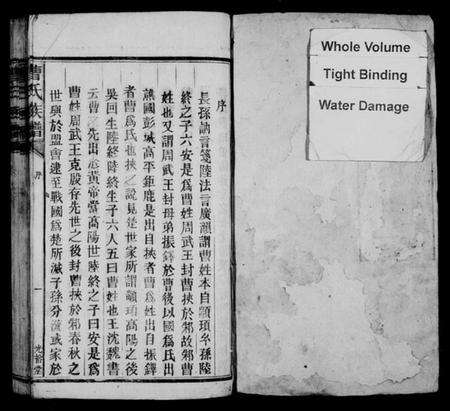 序
長孫訥言箋陸法言廣韻謂曹姓本自顓頊玄孫陸
終之子六安是為曹姓周武王封曹挾於邾故邾曹
姓也又謂周武王封母弟振鐸於曹後以國為氏出
譙國彭城高平鉅鹿是出自挾者曹為姓出自振鐸
者曹為氏也挾之說見楚世家所謂顓頊高陽之後
吳回生陸終陸終生子六人五曰曹姓也王沈魏書
云曹之先出於黃帝當高陽世陸終之子曰安是為
曹姓周武王克殷存先世之後封曹挾於邾春秋之
世與於盟會逮至戰國為楚所滅子孫分流或家於
曹氏族譜
序
一
Whole Volume
Tight Binding
Water Damage